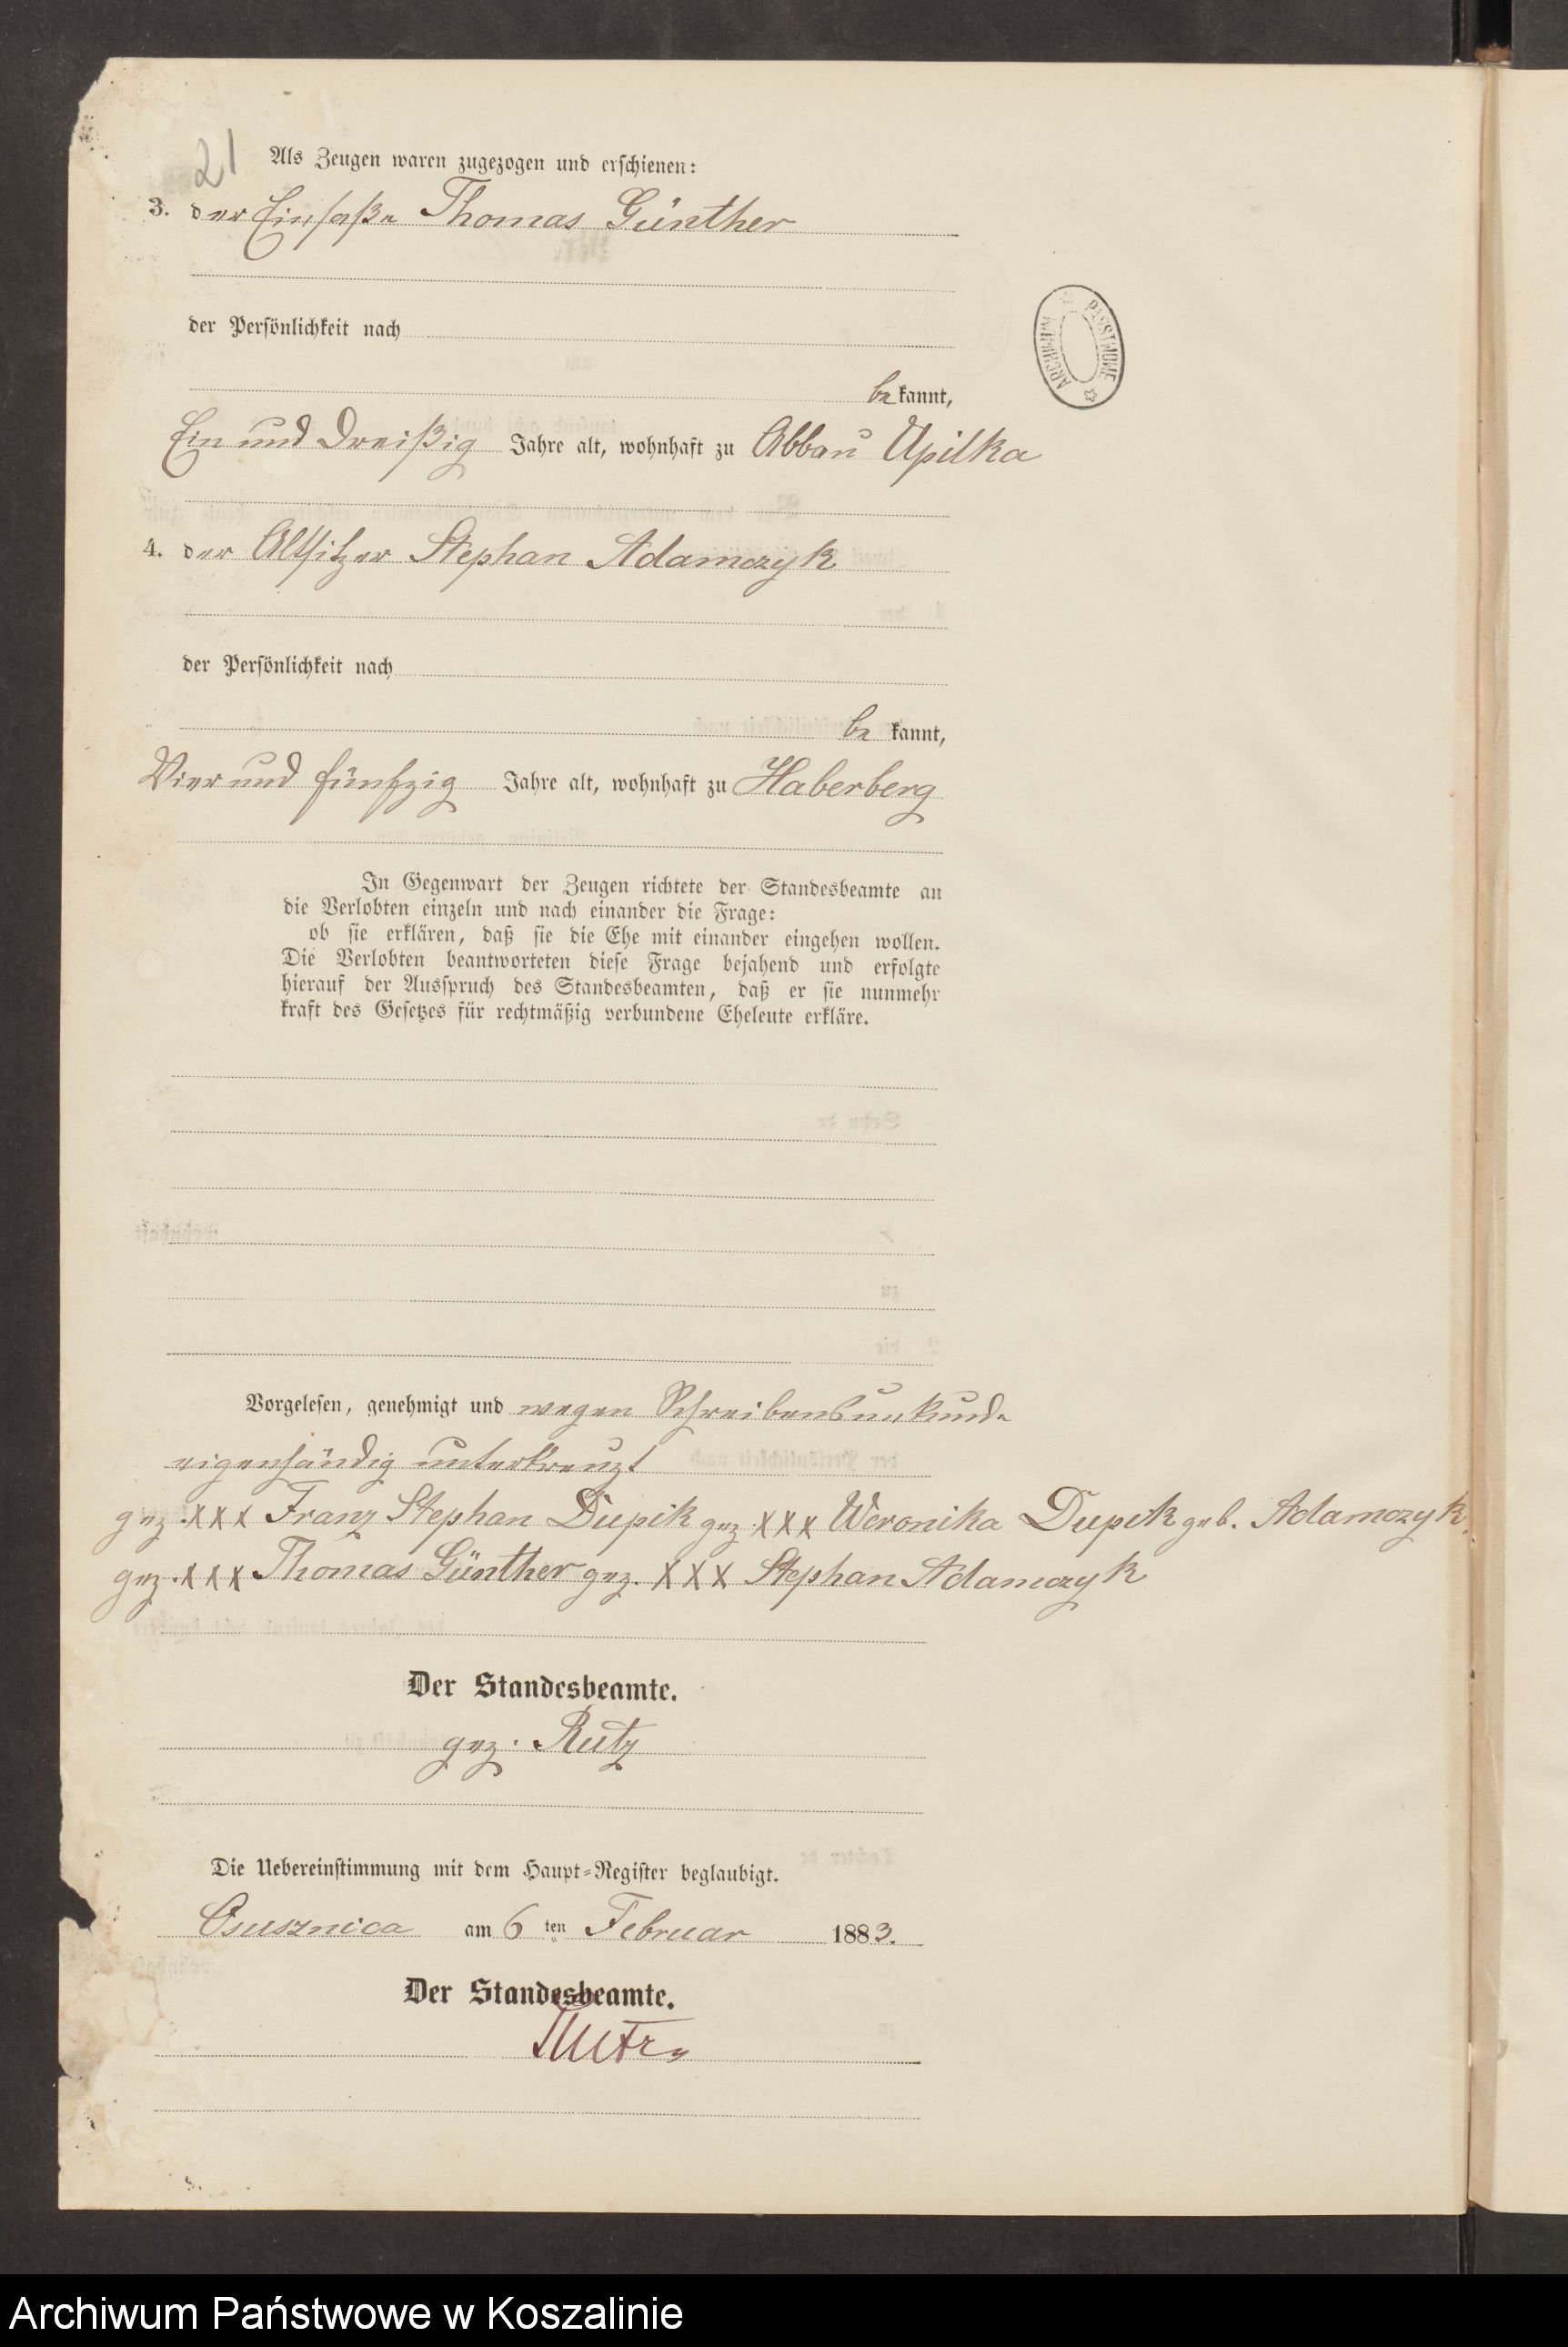 21
Als Zeugen waren zugezogen und erschienen:
3. der Einsaße Thomas Günther
der Persönlichkeit nach
be kannt,
Ein und Dreißig Jahre alt, wohnhaft zu Abbau Upilka
4. der Altsitzer Stephan Adamczyk
der Persönlichkeit nach
be kannt,
Vier und fünfzig Jahre alt, wohnhaft zu Haberberg
In Gegenwart der Zeugen richtete der Standesbeamte an
die Verlobten einzeln und nach einander die Frage:
ob sie erklären, daß sie die Ehe mit einander eingehen wollen.
Die Verlobten beantworteten diese Frage bejahend und erfolgte
hierauf der Ausspruch des Standesbeamten, daß er sie nunmehr
kraft des Gesetzes für rechtmäßig verbundene Eheleute erkläre.
Vorgelesen, genehmigt und wegen Schreibensunkunde
eigenhändig unterkreuzt
gez. XXX Franz Stephan Dupik gez. XXX Weronika Dupik geb. Adamczyk,
gez. XXX Thomas Günther gez. XXX Stephan Adamczyk
Der Standesbeamte.
gez. Rutz
Die Uebereinstimmung mit dem Haupt-Register beglaubigt.
Osusznica am 6 ten Februar 1883.
Der Standesbeamte.
Rutz
ARCHIWUM PAŃSTWOWE
Archiwum Państwowe w Koszalinie